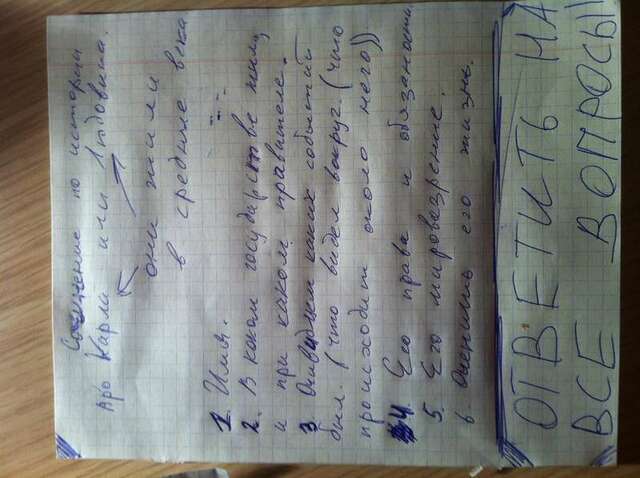 Сочинение по истории
про Карла или Людовика.
они жили
в средние века
1. Имя.
2. В каком государстве жил,
и при каком правителе.
3 каких событий
был. (что видел вокруг. (что
происходит около него))
4. Его права и обязаности.
5. Его мировозрение.
6 Оценить его жизнь.
ОТВЕТИТЬ НА
ВСЕ ВОПРОСЫ